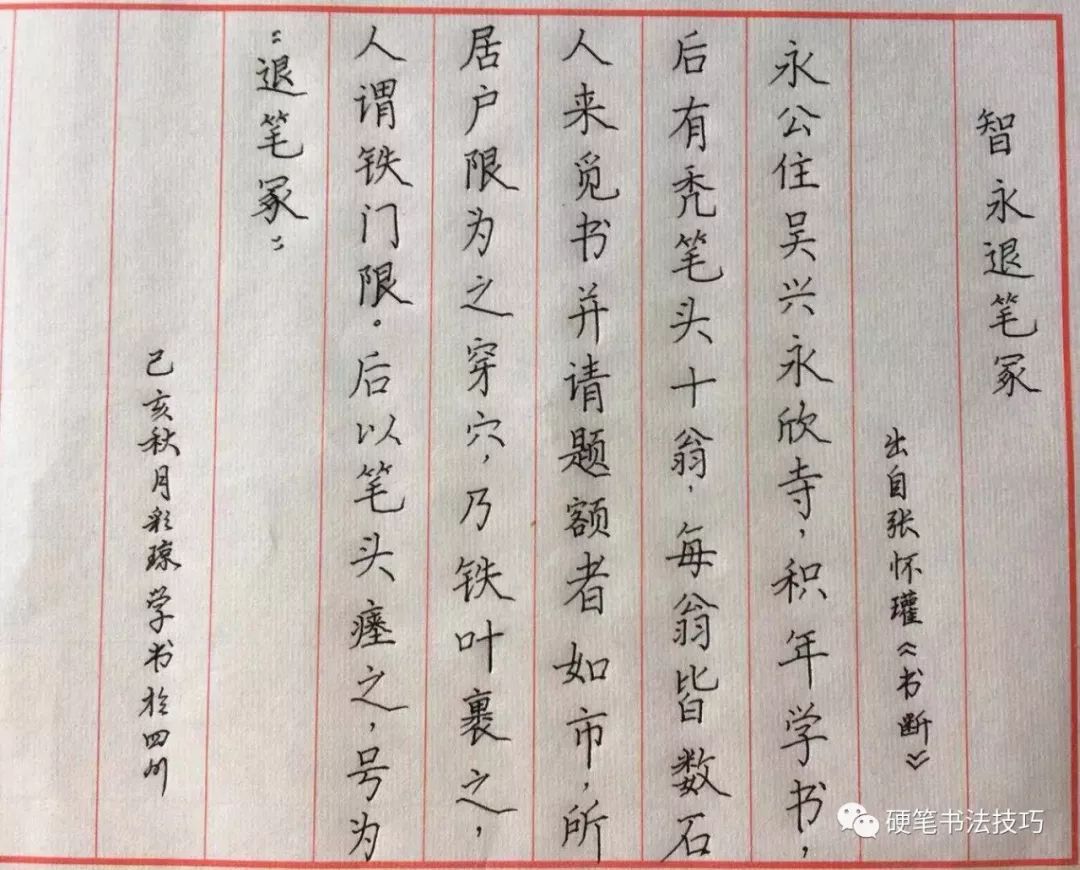 智永退笔冢
出自张怀瓘《书断》
永公住吴兴永欣寺，积年学书，
后有秃笔头十翁，每翁皆数石
人来觅书并请题额者如市，所
居户限为之穿穴，乃铁叶裹之，
人谓铁门限。后以笔头瘗之，号为
“退笔冢”
己亥秋月彩琼学书于四川
硬笔书法技巧